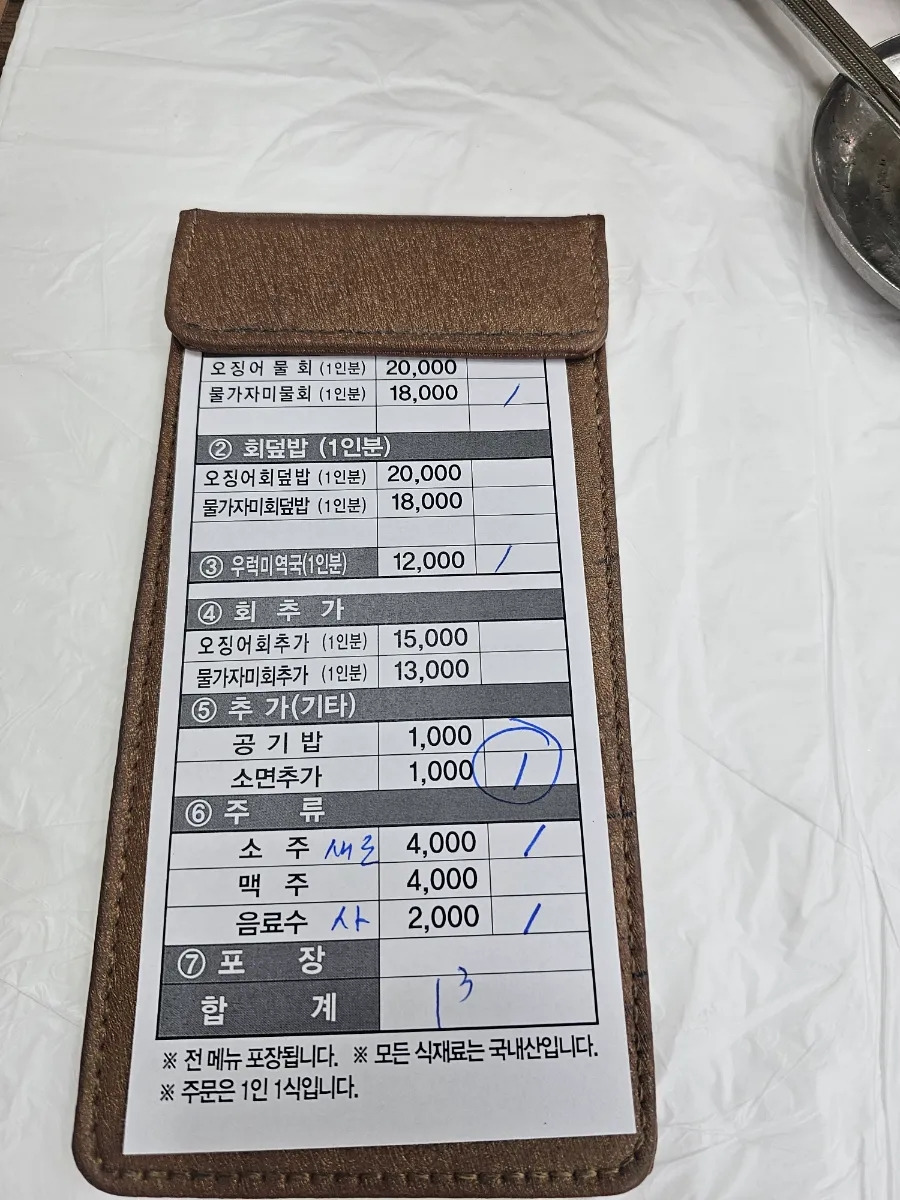 오징어 물 회 (1인분) 20,000
물가자미물회 (1인분) 18,000 /
② 회덮밥 (1인분)
오징어회덮밥 (1인분) 20,000
물가자미회덮밥 (1인분) 18,000
③ 우럭미역국(1인분) 12,000 /
④ 회 추 가
오징어회추가 (1인분) 15,000
물가자미회추가 (1인분) 13,000
⑤ 추 가(기타)
공 기 밥 1,000
소면추가 1,000 /
⑥ 주 류
소 주 새로 4,000 /
맥 주 4,000
음료수 사 2,000 /
⑦ 포 장
합 계 1 3
※ 전 메뉴 포장됩니다. ※ 모든 식재료는 국내산입니다.
※ 주문은 1인 1식입니다.